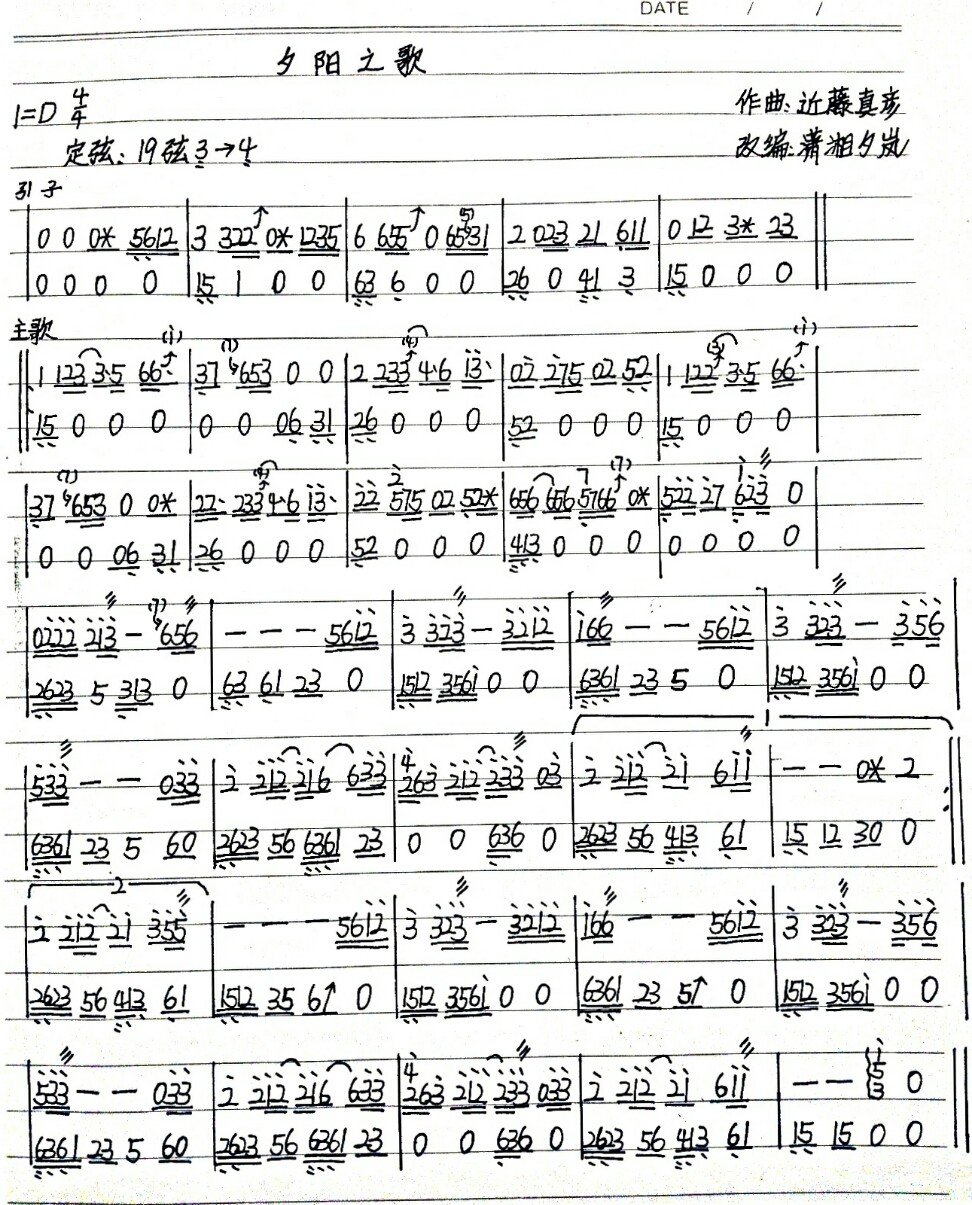 DATE / /
夕阳之歌
1=D 4/4
作曲:近藤真彦
定弦:19弦3→4
改编:潇湘夕岚
引子
0 0 0* 5612 | 3 322↑ 0* 1235 | 6 655↑ 0 6531 (5) | 2 023 21 611 | 0 12 3* 23 ||
0 0 0 0 | 15 1 0 0 | 63 6 0 0 | 26 0 41 3 | 15 0 0 0 ||
主歌
1 123 3·5 66· (i) | 37 (7) 653 0 0 | 2 233 (4) 4·6 i3· | 02 275 02 52 | 1 122 (3) 3·5 66· (i) |
15 0 0 0 | 0 0 06 31 | 26 0 0 0 | 52 0 0 0 | 15 0 0 0 |
37 (7) 653 0 0* | 22· 233 (4) 4·6 i3· | 22 2 575 02 52* | 656 656 5766 7 (7) 0* | 522 27 i 623 0 |
0 0 06 31 | 26 0 0 0 | 52 0 0 0 | 413 0 0 0 | 0 0 0 0 |
0222 213 — (7) 656 | — — — 5612 | 3 323 — 3212 | i66 — — 5612 | 3 323 — 356 |
2623 5 313 0 | 63 61 23 0 | 1512 356i 0 0 | 6361 23 5 0 | 1512 356i 0 0 |
1
533 — — 033 | 2 212 216 633 | 4 263 212 233 03 | 2 212 21 6ii | — — 0* 2 :||
6361 23 5 60 | 2623 56 6361 23 | 0 0 636 0 | 2623 56 413 61 | 15 12 30 0 ||
2
2 212 21 355 | — — — 5612 | 3 323 — 3212 | i66 — — 5612 | 3 323 — 356 |
2623 56 413 61 | 1512 35 6↑ 0 | 1512 356i 0 0 | 6361 23 5↑ 0 | 1512 356i 0 0 |
533 — — 033 | 2 212 216 633 | 4 263 212 233 033 | 2 212 21 6ii | — — i53 0 ||
6361 23 5 60 | 2623 56 6361 23 | 0 0 636 0 | 2623 56 413 61 | 15 15 0 0 ||